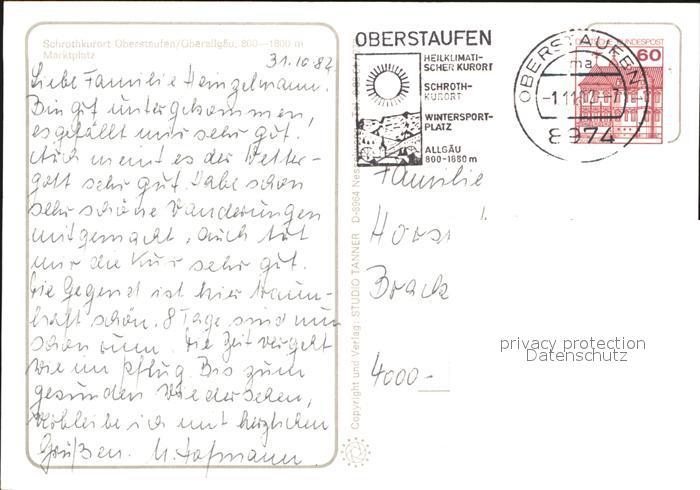 Schrothkurort Oberstaufen/Oberallgäu, 800–1800 m
Marktplatz
31.10.82
Liebe Familie Heinzelmann.
Bin gut untergekommen,
es gefällt mir sehr gut.
Auch meint es der Wetter-
gott sehr gut. Habe schon
sehr schöne Wanderungen
mitgemacht, auch tut
mir die Kur sehr gut.
Die Gegend ist hier traum-
haft schön. 8 Tage sind nun
schon rum. Die Zeit vergeht
wie im Pflug. Bis zum
gesunden Wiedersehen,
verbleibe ich mit herzlichen
Grüßen. M. Hofmann.
Copyright und Verlag: STUDIO TANNER D-8964 Nes
OBERSTAUFEN
HEILKLIMATI-
SCHER KURORT
SCHROTH-
KURORT
WINTERSPORT-
PLATZ
ALLGÄU
800-1880 m
OBERSTAUFEN
ma
-1.11.82
8974
DEUTSCHE BUNDESPOST
60
Familie
Horst
Brack
4000-
privacy protection
Datenschutz